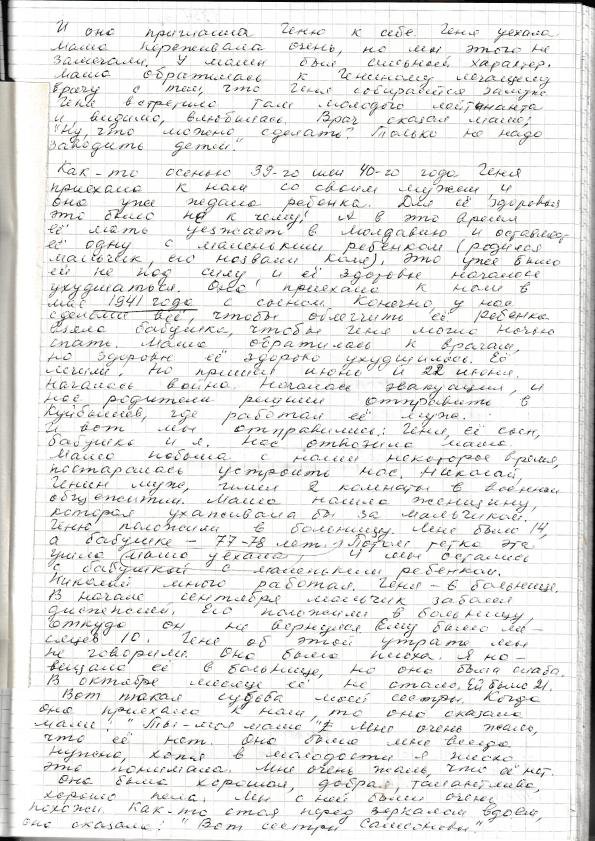 И она пригласила Геню к себе. Геня уехала.
Мама переживала очень, но мы этого не
замечали. У мамы был сильный характер.
Мама обратилась к Гениному лечащему
врачу с тем, что Геня собирается замуж.
Геня встретила там молодого лейтинанта
и, видимо, влюбилась. Врач сказал маме:
"Ну, что можно сделать? Только не надо
заводить детей."
Как-то осенью 39-го или 40-го года Геня
приехала к нам со своим мужем и
она уже ждала ребенка. Для её здоровья
это было не к чему! А в это время
её мать уезжает в Молдавию и оставляет
её одну с маленьким ребенком (родился
мальчик, его назвали Коля). Это уже было
ей не под силу и её здоровье началось
ухудшаться. Она приехала к нам в
мае 1941 года с сыном. Конечно, у нас
сделали всё, чтобы облегчить её. Ребенка
взяла бабушка, чтобы Геня могла ночью
спать. Мама обратилась к врачам,
но здоровье её здорово ухудшилось. Её
лечили. Но пришли июнь и 22 июня.
Началась война. Началась эвакуация, и
нас родители решили отправить в
Куйбышев, где работал её муж.
И вот мы отправились: Геня, её сын,
бабушка и я. Нас отвозила мама.
Мама побыла с нами некоторое время,
постаралась устроить нас. Николай,
Генин муж, имел 2 комнаты в военном
общежитии. Мама нашла женщину,
которая ухаживала бы за мальчиком.
Геню положили в больницу. Мне было 14,
а бабушке – 77-78 лет. Потом тетка эта
ушла (мама уехала) и мы остались
с бабушкой с маленьким ребенком.
Николай много работал, Геня – в больнице.
В начале сентября мальчик заболел
диспепсией. Его положили в больницу,
откуда он не вернулся. Ему было ме-
сяцев 10. Гене об этой утрате мы
не говорили. Она была плоха. Я на-
вещала её в больнице, но она была слаба.
В октябре месяце её не стало. Ей было 21.
Вот такая судьба моей сестры. Когда
она приехала к нам, то она сказала
маме: "Ты – моя мама". Мне очень жаль,
что её нет. Она была мне всегда
нужна, хотя в молодости я плохо
это понимала. Мне очень жаль, что её нет.
Она была хорошая, добрая, талантлива,
хорошо пела. Мы с ней были очень
похожи. Как-то стоя перед зеркалом вдвоем,
она сказала: "Вот сестры